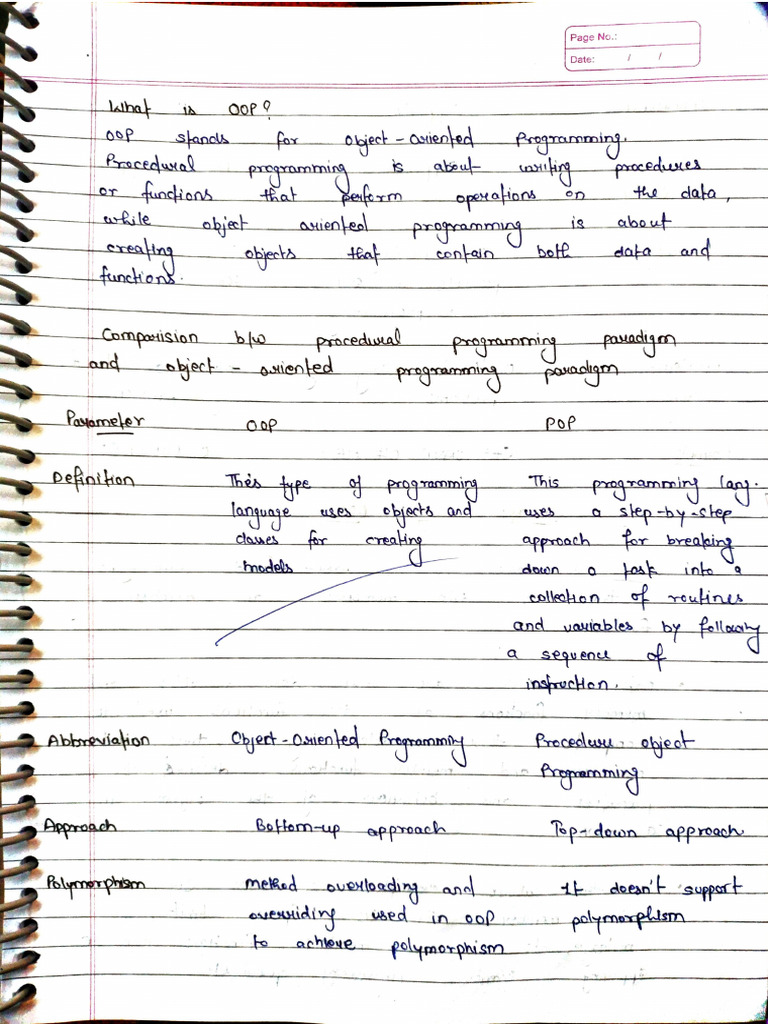 Page No.:
Date: / /
What is OOP?
OOP stands for object-oriented Programming.
Procedural programming is about writing procedures
or functions that perform operations on the data,
while object oriented programming is about
creating objects that contain both data and
functions.
Comparision b/w procedural programming paradigm
and object-oriented programming paradigm
Parameter OOP POP
Definition This type of programming This programming lang.
language uses objects and uses a step-by-step
classes for creating approach for breaking
models down a task into a
collection of routines
and variables by following
a sequence of
instruction.
Abbreviation Object-Oriented Programming Procedure object
Programming
Approach Bottom-up approach Top-down approach
Polymorphism method overloading and It doesn't support
overriding used in OOP polymorphism
to achieve polymorphism